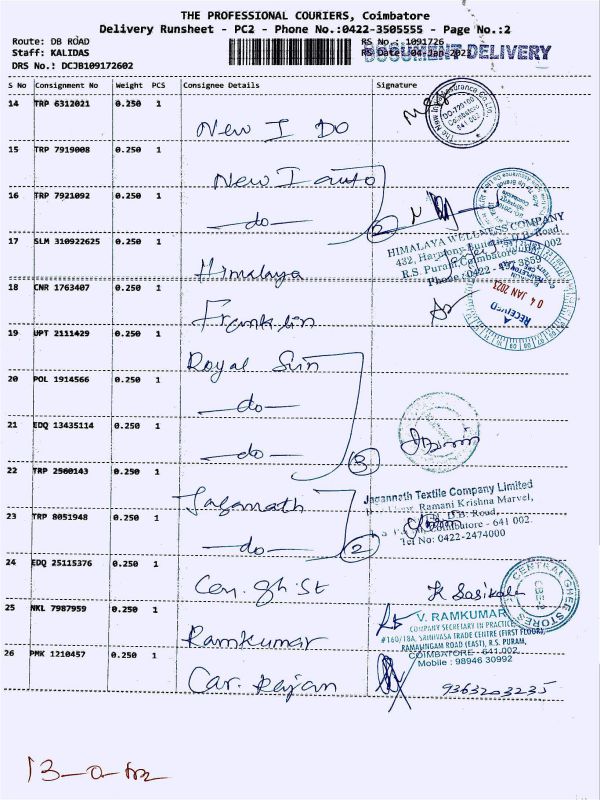 THE PROFESSIONAL COURIERS, Coimbatore
Delivery Runsheet - PC2 - Phone No.:0422-3505555 - Page No.:2
Route: DB ROAD
RS No.: 1091726
Staff: KALIDAS
RS Date: 04-Jan-2023
DOCUMENT DELIVERY
DRS No.: DCJB109172602
S No Consignment No Weight PCS Consignee Details Signature
14 TRP 6312021 0.250 1
New I DO
15 TRP 7919008 0.250 1
New I auto
16 TRP 7921092 0.250 1
-do- 2
17 SLM 310922625 0.250 1
Himalaya
HIMALAYA WELLNESS COMPANY
R.S. Puram, Coimbatore
18 CNR 1763407 0.250 1
Franklin
04 JAN 2023
RECEIVED
19 UPT 2111429 0.250 1
Royal Sun
20 POL 1914566 0.250 1
-do-
21 EDQ 13435114 0.250 1
-do- 3
22 TRP 2560143 0.250 1
Jagannath
Jagannath Textile Company Limited
Ramani Krishna Marvel,
D.B. Road,
Coimbatore - 641 002.
Tel No: 0422-2474000
23 TRP 8051948 0.250 1
-do- 2
24 EDQ 25115376 0.250 1
Cen. gh St
K Sasikala
CENTRAL GHEE STORES
CBE-2
25 NKL 7987959 0.250 1
Ramkumar
V. RAMKUMAR
COMPANY SECRETARY IN PRACTICE
#160/18A, SRINIVASA TRADE CENTRE (FIRST FLOOR),
RAMALINGAM ROAD (EAST), R.S. PURAM,
COIMBATORE - 641 002.
Mobile : 98946 30992
26 PMK 1210457 0.250 1
Car. Rajan
9363203235